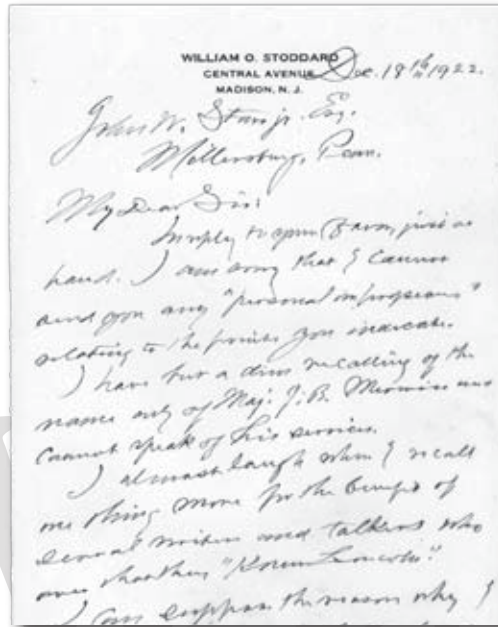 WILLIAM O. STODDARD
CENTRAL AVENUE Dec. 18th 1922.
MADISON, N. J.
John W. Starr jr. Esq.
Millersburg, Penn.
My Dear Sir:
In reply to your favor, just at
hand. I am sorry that I cannot
send you any "personal impressions"
relating to the points you indicate.
I have but a dim recalling of the
name only of Maj. J. B. Merwin and
cannot speak of his services.
I almost laugh when I recall
one thing more for the benefit of
several writers and talkers who
"Lincoln."
the reason why I